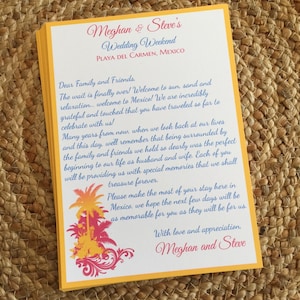 Meghan & Steve's
Wedding Weekend
Playa del Carmen, Mexico
Dear Family and Friends,
The wait is finally over! Welcome to sun, sand and
relaxation... welcome to Mexico! We are incredibly
grateful and touched that you have traveled so far to
celebrate with us!
Many years from now, when we look back at our lives
and this day, we'll remember that being surrounded by
the family and friends we hold so dearly was the perfect
beginning to our life as husband and wife. Each of you
will be providing us with special memories that we shall
treasure forever.
Please make the most of your stay here in
Mexico, we hope the next few days will be
as memorable for you as they will be for us.
With love and appreciation,
Meghan and Steve